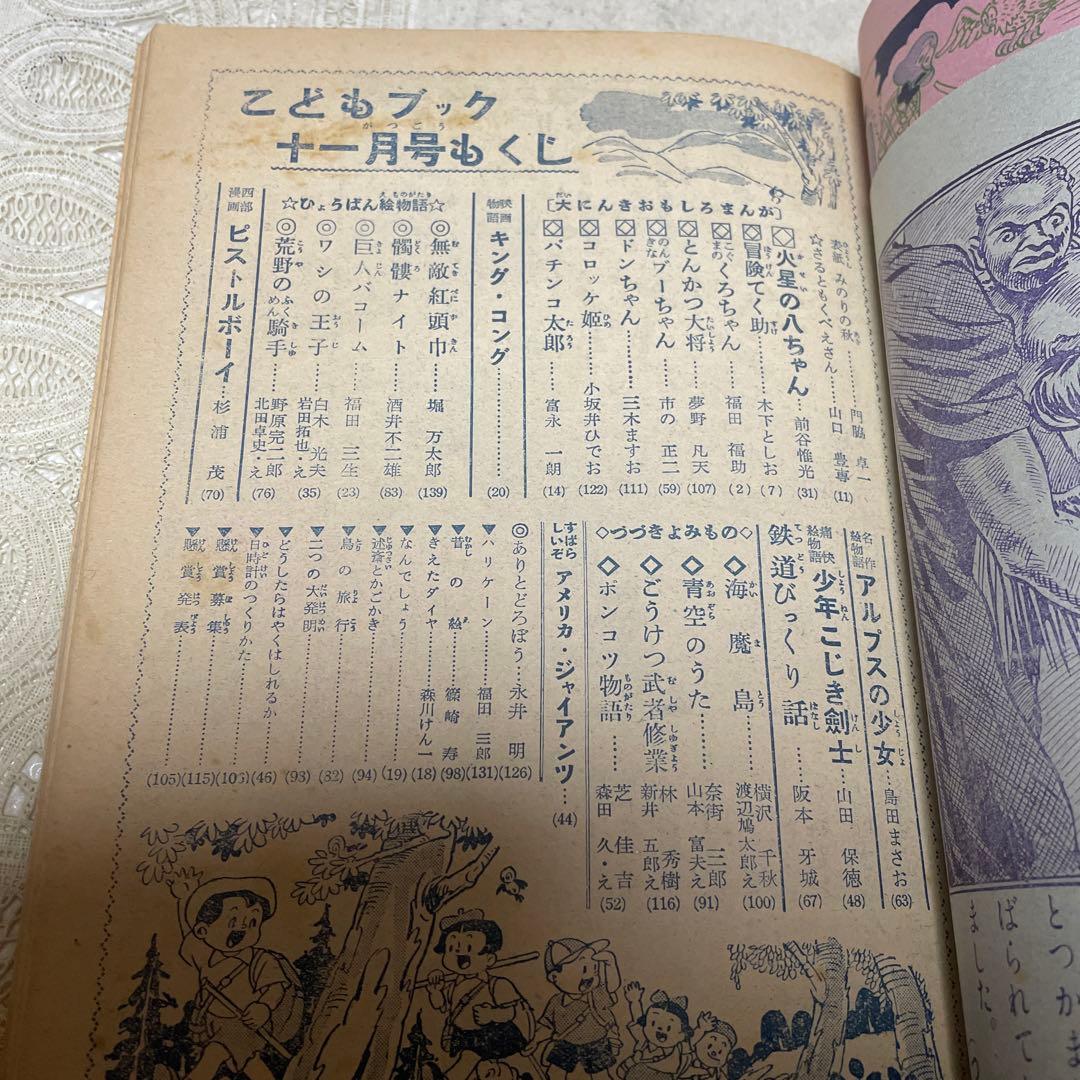 こどもブック
十一月号もくじ
表紙 みのりの秋……門脇 卓一
☆さるともくべえさん……山口 豊専(11)
〔大にんきおもしろまんが〕
◇火星の八ちゃん……前谷惟光(31)
◇冒険てく助……木下としお(7)
◇こぐまのくろちゃん……福田 福助(2)
◇とんかつ大将……夢野 凡天(107)
◇のんきなブーちゃん……市の 正二(59)
◇ドンちゃん……三木ますお(111)
◇コロッケ姫……小坂井ひでお(122)
◇パチンコ太郎……富永 一朗(14)
映画物語 キング・コング……(20)
☆ひょうばん絵物語☆
◎無敵紅頭巾……堀 万太郎(139)
◎髑髏ナイト……酒井不二雄(83)
◎巨人バコーム……福田 三生(23)
◎ワシの王子……白木 光夫 岩田拓也え(35)
◎荒野の覆面騎手……野原完二郎 北田卓史え(76)
西部漫画 ピストルボーイ……杉浦 茂(70)
名作絵物語 アルプスの少女……島田まさお(63)
痛快絵物語 少年こじき剣士……山田 保徳(48)
鉄道びっくり話……阪本 牙城(67)
◇つづきよみもの◇
◇海魔島……横沢 千秋 渡辺鳩太郎え(100)
◇青空のうた……奈街 三郎 山本 富夫え(91)
◇ごうけつ武者修業……林 秀樹 新井 五郎え(116)
◇ポンコツ物語……芝 佳吉 森田 久・え(52)
すばらしいぞ アメリカ・ジャイアンツ…(44)
◎ありとどろぼう……永井 明(126)
▼ハリケーン……福田 三郎(131)
▼昔の絵……篠崎 寿(98)
▼きえたダイヤ……森川けん一(18)
▼なんでしょう……(19)
▼述斎とかごかき……(94)
▼鳥の旅行……(32)
▼二つの大発明……(93)
▼どうしたらはやくはしれるか……(46)
▼日時計のつくりかた……(103)
▼懸賞募集……(115)
▼懸賞発表……(105)
とつかま
ばられて
ました